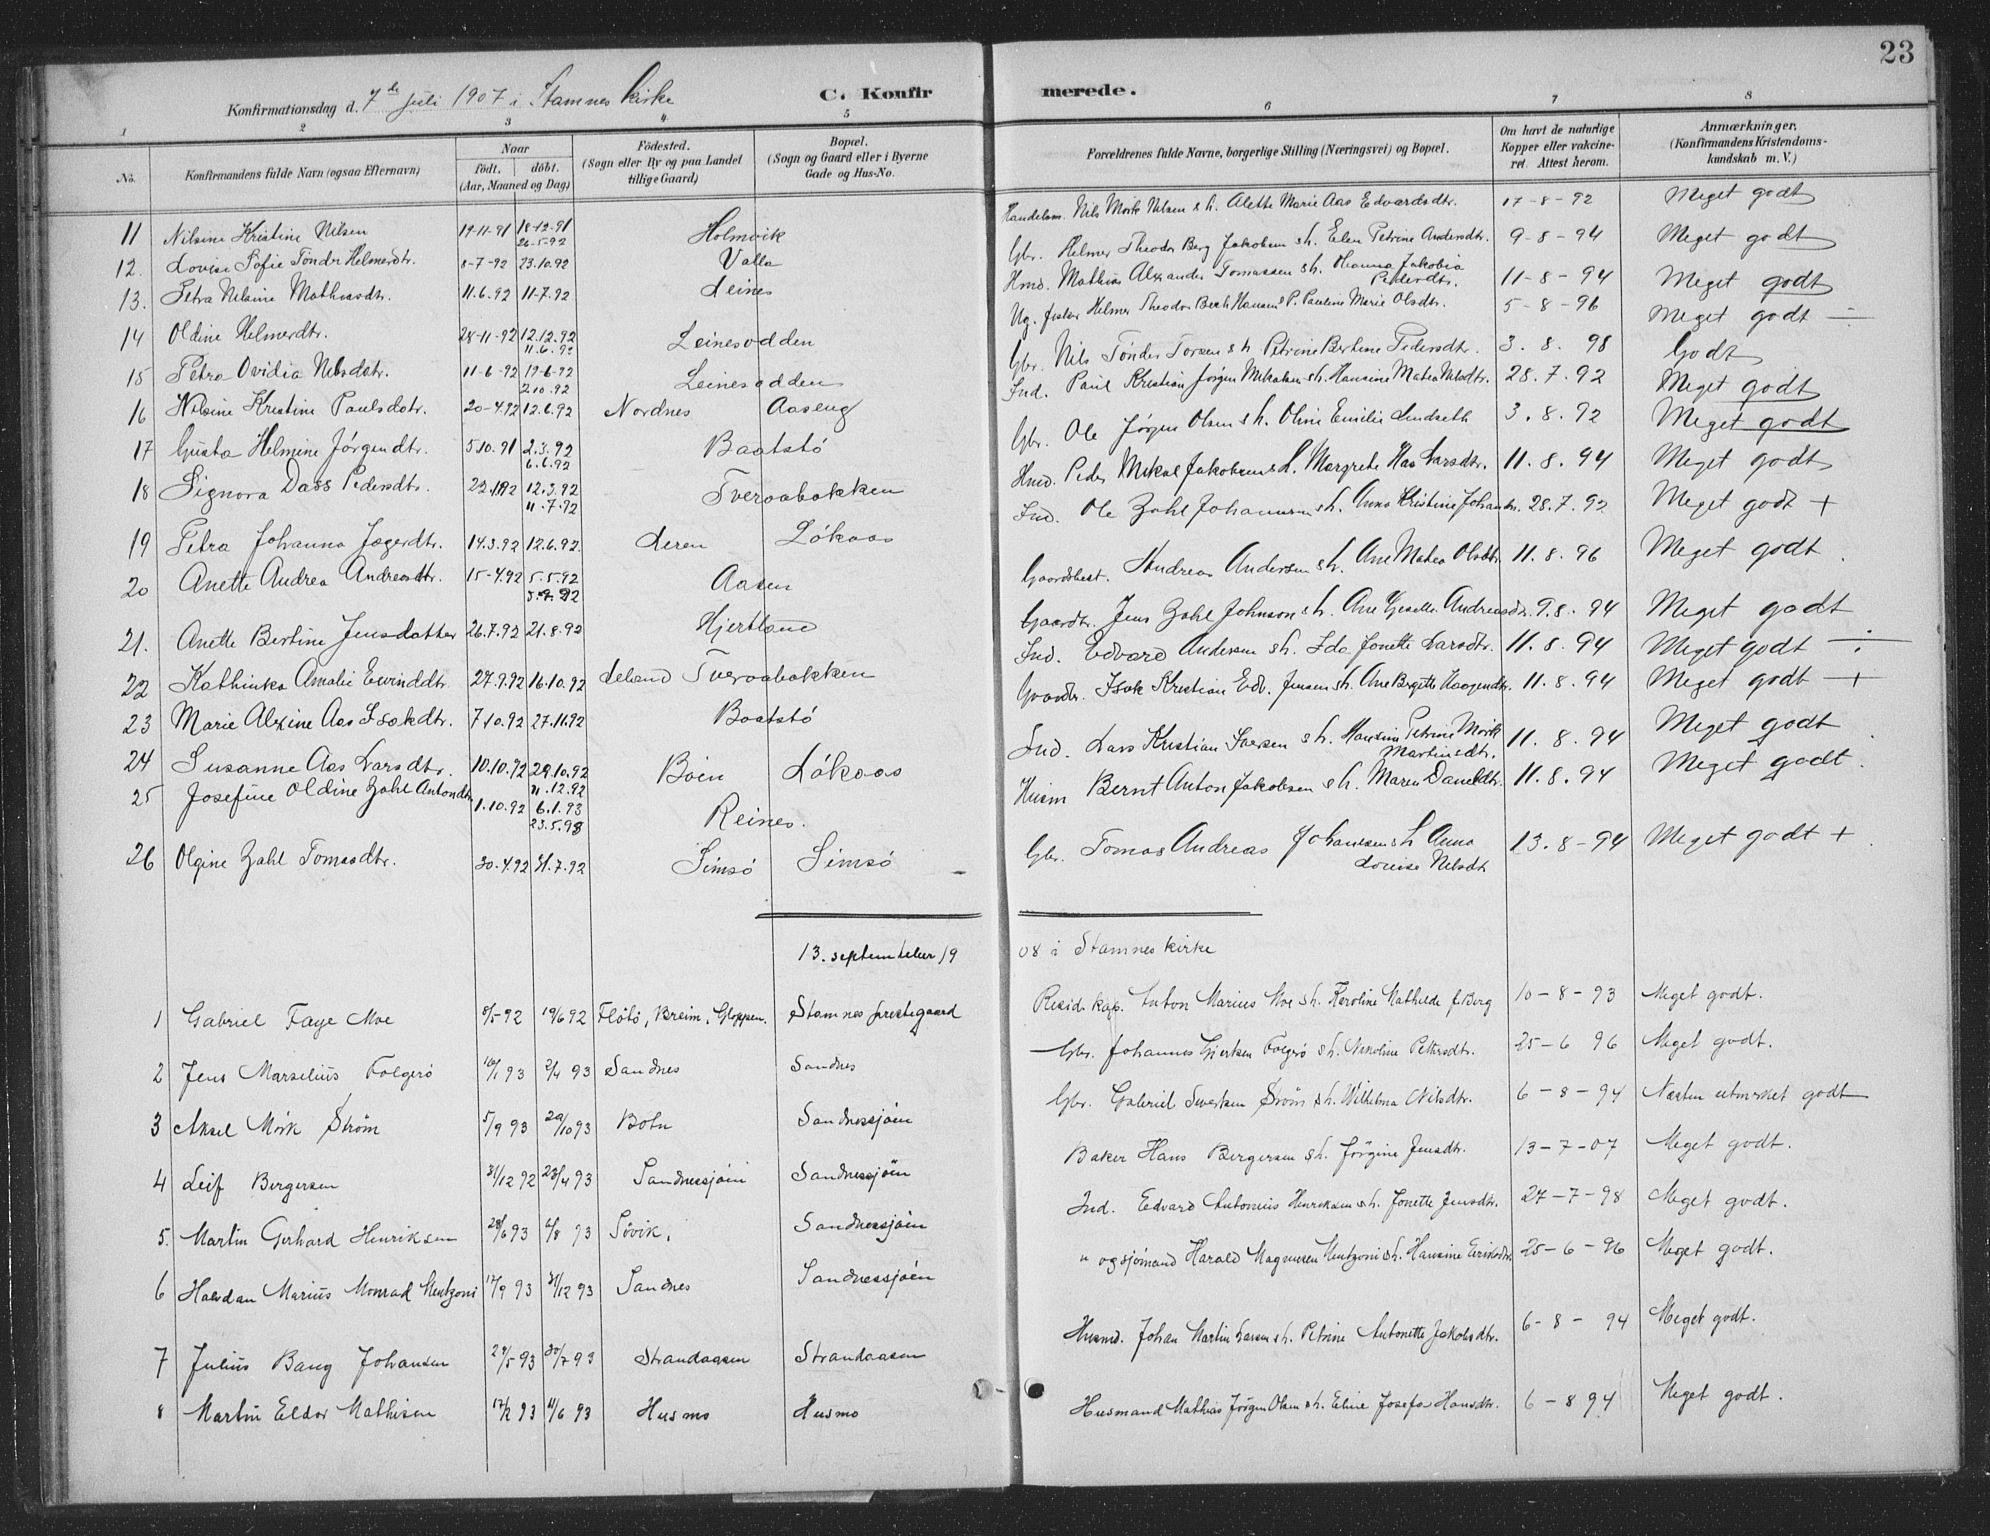 23
Konfirmationsdag d. 7de juli 1907 i Stamnes kirke C. Konfirmerede.
1 2 3 4 5 6 7 8
No. Konfirmandens fulde Navn (ogsaa Efternavn) Naar födt. döbt. (Aar, Maaned og Dag) Födested. (Sogn eller By og paa Landet tillige Gaard) Bopæl. (Sogn og Gaard eller i Byerne Gade og Hus-No. Forældrenes fulde Navne, borgerlige Stilling (Næringsvei) og Bopæl. Om havt de naturlige Kopper eller vaccineret. Attest herom. Anmærkninger. (Konfirmandens Kristendomskundskab m. V.)
11 Nilsine Kristine Nilsen 19-11-91 18-12-91 26-5-92 Holmvik Handelsm. Nils Mørk Nilsen & h. Alette Marie Aas Edvardsdtr. 17-8-92 Meget godt
12. Lovise Sofie Tönder Helmerdtr. 8-7-92 23.10.92 Valla Gbr. Helmer Theodor Berg Jakobsen & h. Elen Petrine Andersdtr. 9-8-94 Meget godt
13. Petra Nilsine Mathiasdtr. 11.6.92 11-7.92 Leines Hmd. Mathias Alexander Tomassen & h. Hanna Jakobia Pedersdtr. 11-8-94 Meget godt
14 Oldine Helmerdtr. 28-11-92 12.12.92 11.6.93 Leinesodden Ug. fisker Helmer Theodor Bech Hansen & P. Pauline Marie Olsdtr. 5-8-96 Meget godt
15 Petra Ovidia Nilsdatr. 11-6-92 19-6-92 2.10.92 Leinesodden Gbr. Nils Tönder Torsen & h. Petrine Bertine Pedersdtr. 3.8.98 Godt
16 Nilsine Kristine Paulsdatr. 20-4.92 12.6.92 Nordnes Aaseng Ind. Paul Kristian Jörgen Mikalsen & h. Hansine Matea Nilsdtr. 28.7.92 Meget godt
17 Gusta Helmine Jörgendtr. 5.10.91 2.3.92 6.6.92 Baatstö Gbr. Ole Jörgen Olsen & h. Oline Emilie Lindseth 3.8.92 Meget godt
18 Signora Dass Pedersdtr. 12.3.92 11.7.92 Tveraabakken Hmd. Peder Mikal Jakobsen & h. Margrete Aas Larsdtr. 11.8.94 Meget godt
19 Petra Johanna Jægerdtr. 14.3.92 12.6.92. Leren Lökaas Ind. Ole Zahl Johannsen & h. Anna Kristine Johansdtr. 28.7.92 Meget godt +
20 Anette Andrea Andreasdtr. 15-4.92 5.5.92 Aasen Gaardbest. Andreas Andersen & h. Ane Matea Olsdtr. 11.8.96 Meget godt
21. Anette Bertine Jensdatter 26.7.92 21.8.92 Hjertland Gaardbr. Jens Zahl Johnson & h. Ane Gjesella Andreasdtr. 9.8.94 Meget godt
22 Kathinka Amalie Eevinddtr. 27.9.92 16.10.92 Leland Tveraabakken Ind. Edvard Andersen & h. Ida Jonette Larsdtr. 11.8.94 Meget godt
23 Marie Alxine Aas Isakdtr. 7.10.92 27.11.92 Baatstö Gaardbr. Isak Kristian Edv. Jensen & h. Ane Bergitte Haagendtr. 11.8.94 Meget godt +
24 Susanne Aas Larsdtr. 10.10.92 29.10.92 11.12.92 Böen Lökaas Ind. Lars Kristian Larsen & h. Hansine Petrine Mörk Martinsdtr. 11.8.94 Meget godt
25 Josefine Oldine Zahl Antondtr. 1.10.92 6.1.93 23.5.98 Reines. Husm Bernt Anton Jakobsen & h. Maren Daneldtr. 11.8.94 Meget godt.
26 Olgine Zahl Tomasdtr. 30.4.92 31.7.92 Simsö Simsö Gbr. Tomas Andreas Johansen & h Anna Lovise Nilsdtr 13.8-94 Meget godt +
13. september 1908 i Stamnes kirke
1 Gabriel Faye Moe 8/5 92 19/6 92 Flötö, Breim, Gloppen. Stamnes prestegaard Resid. kap. Anton Marius Moe & h. Karoline Mathilde f. Berg 10-8-93 Meget godt.
2 Jens Marselius Folgerö 16/1 93 2/4 93 Sandnes Sandnes Gbr. Johannes Gjertsen Folgerö & h. Nikoline Pettersdtr. 25-6 96 Meget godt.
3 Aksel Mörk Ström 5/9 93 29/10 93 Botn Sandnessjöen Gbr. Gabriel Sivertsen Ström & h. Wilhelma Nilsdtr. 6-8-94 Næsten utmerket godt
4 Leif Bergersen 31/12 92 23/4 93 Sandnessjöen Sandnessjöen Baker Hans Bergersen & h. Jörgine Jensdtr. 13-7-07 Meget godt.
5. Martin Gerhard Henriksen 28/6 93 6/8 93 Sövik. Sandnessjöen Ind. Edvard Antonius Henriksen & h. Jonette Jensdtr. 27-7-98 Meget godt.
6 Halvdan Marius Monrad Mentzoni 17/9 93 31/12 93 Sandnes Sandnessjöen " og sjömand Harald Magnussen Mentzoni & h. Hansine Eriksdtr. 25-6-96 Meget godt.
7 Julius Bang Johansen 29/5 93 30/7 93 Strandaasen Strandaasen Husmd. Johan Martin Larsen & h. Petrine Antonette Jakobsdtr. 6-8-94 Meget godt.
8 Martin Eldor Mathisen 17/2 93 11/6 93 Husmo Husmo Husmand Mathias Jörgen Olsen & h. Eline Josefa Hansdtr. 6-8 94 Meget godt.